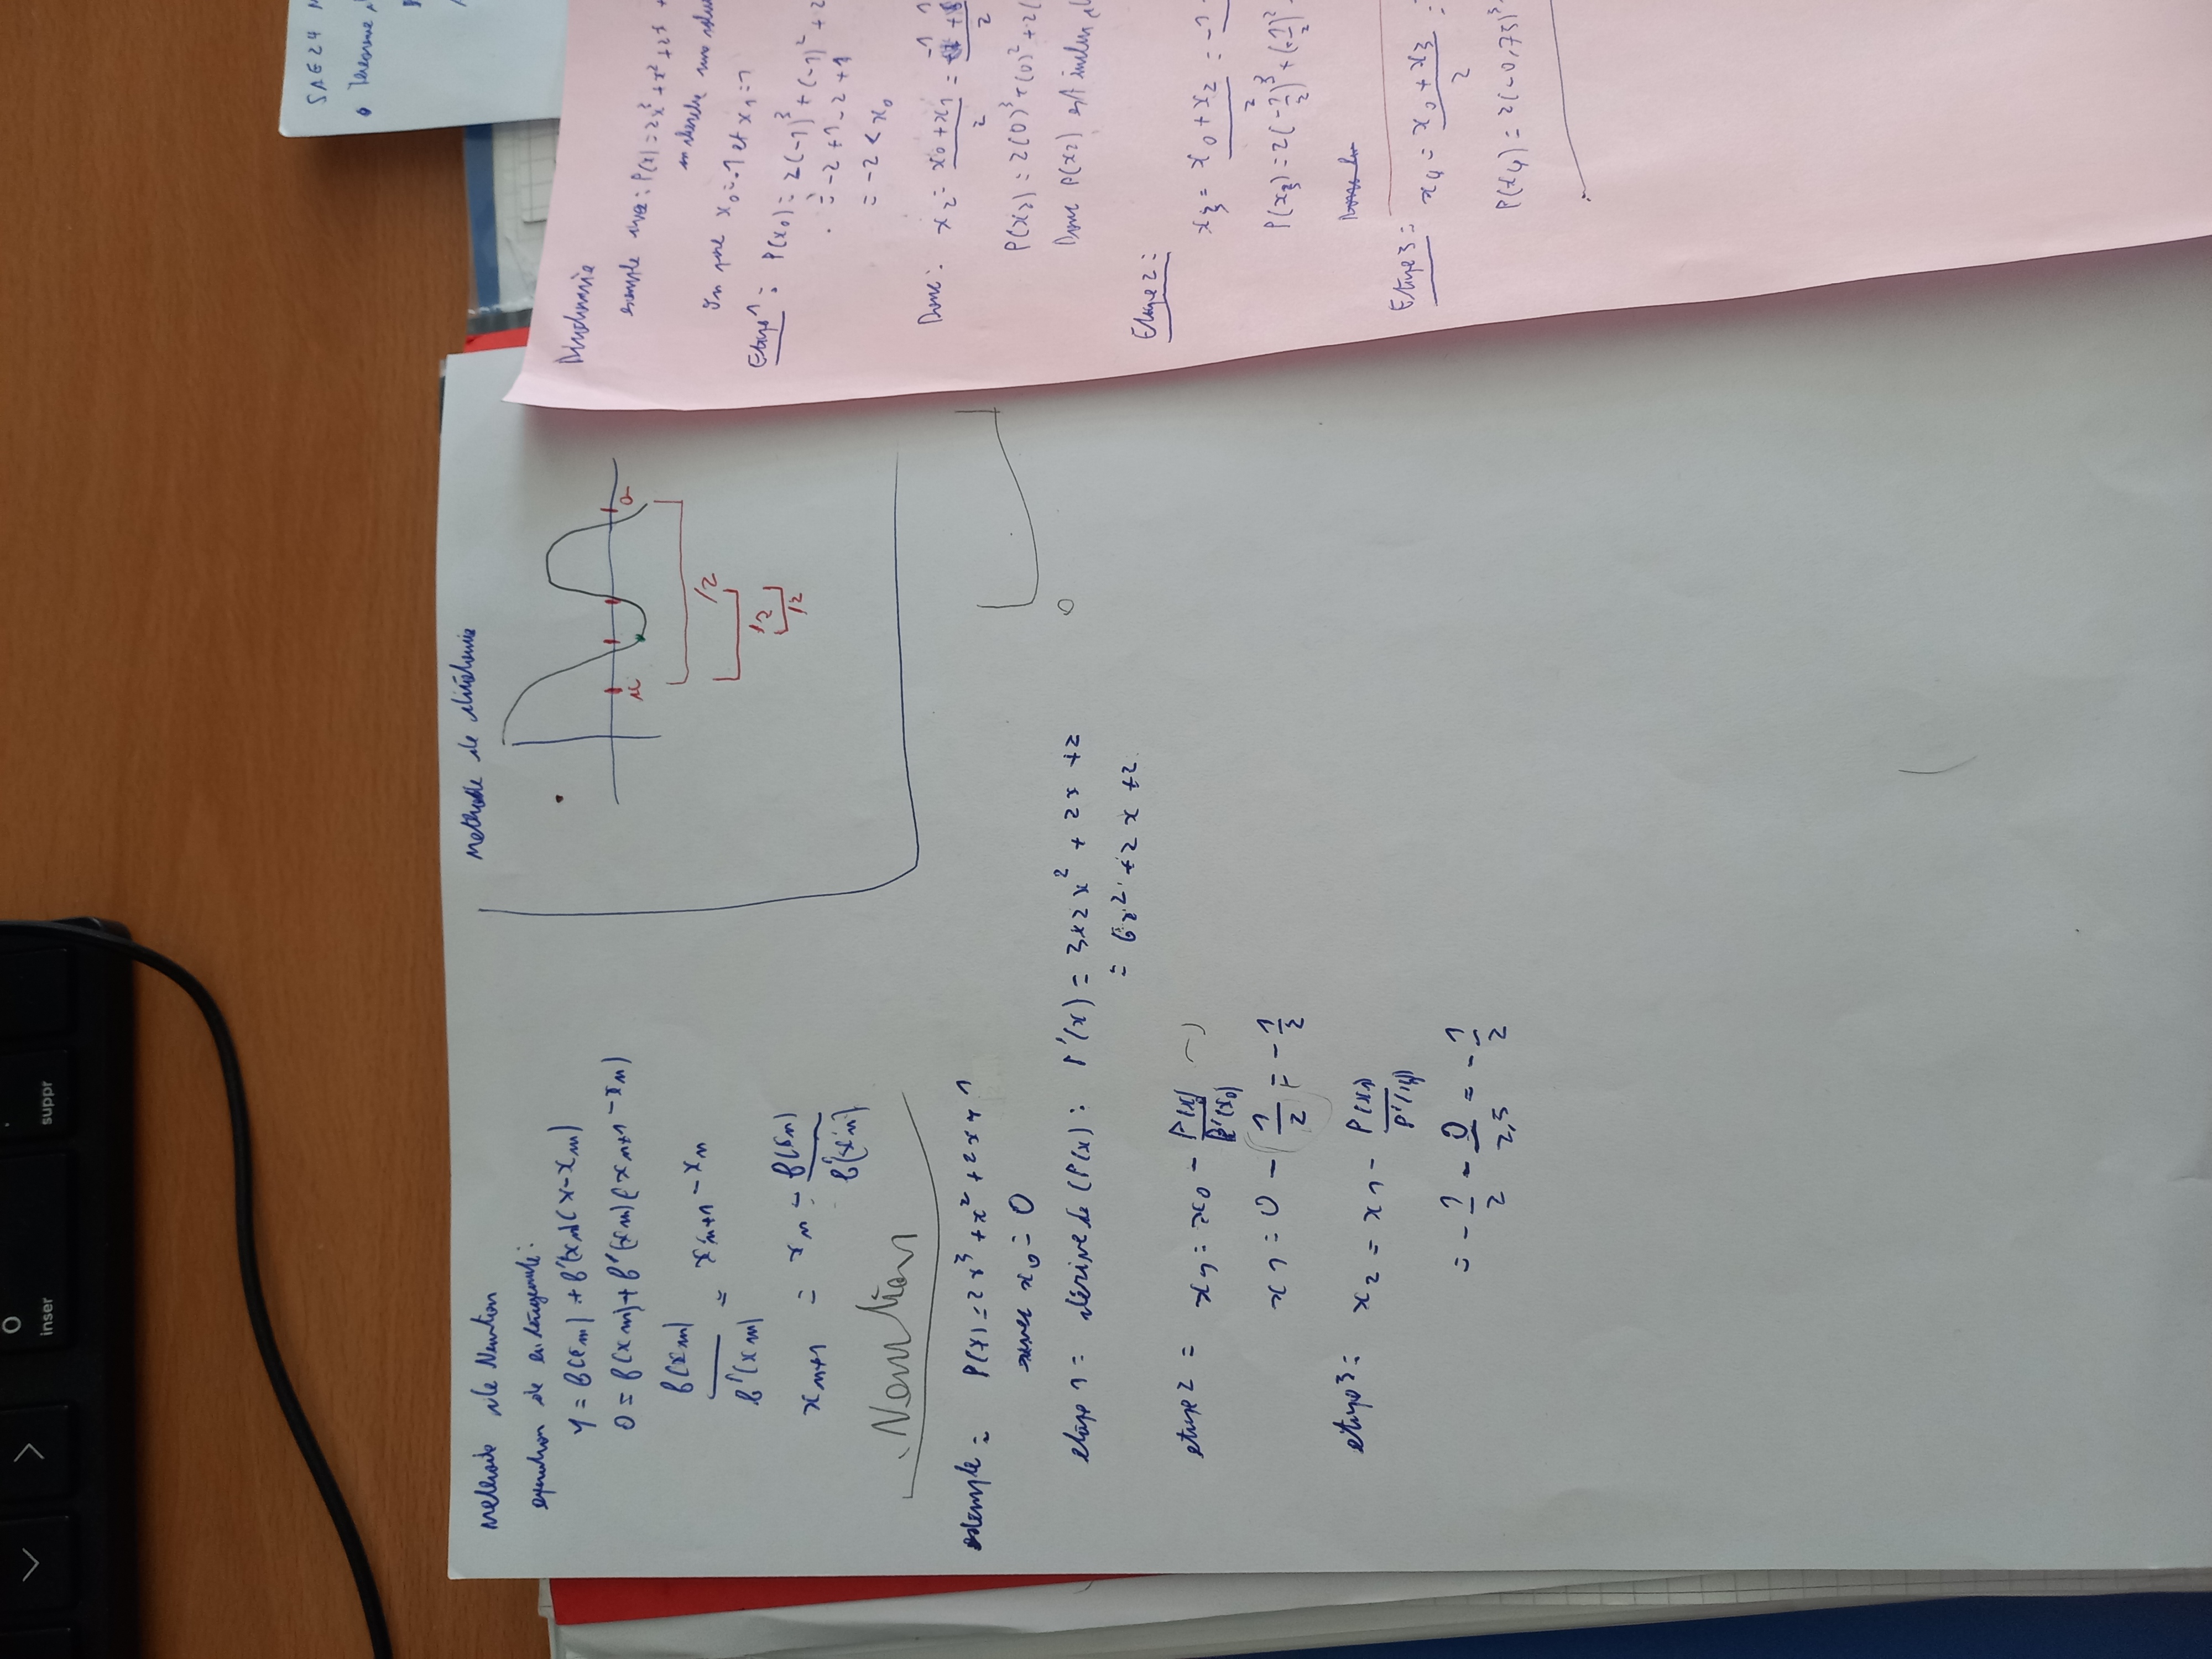 inser
suppr
SAE24 M
Methode de Newton
equation de la tangente:
y = f(xn) + f'(xn)(x-xn)
0 = f(xn) + f'(xn)(xn+1 - xn)
f(xn)
f'(xn)
= xn+1 - xn
xn+1 = xn - f(xn)
f'(xn)
Newton
exemple = P(x) = 2x³ + x² + 2x + 1
avec x0 = 0
etape 1 = dérivé de (P(x) : P'(x) = 3x2x² + 2x + 2
= 6x² + 2x + 2
etape 2 = x1 = x0 - P(x0)
P'(x0)
x1 = 0 - 1/2 = - 1/2
etape 3 = x2 = x1 - P(x1)
P'(x1)
= - 1/2 - 0/2,5 = - 1/2
Methode de dichotomie
a
/2
/2
/2
0
Dichotomie
exemple avec : P(x) = 2x³ + x² + 2x +
on cherche une
On pose x0 = -1 et x1 = 1
Etape 1 : P(x0) = 2(-1)³ + (-1)² + 2
= -2 + 1 - 2 + 1
= -2 < x0
Donc : x2 = x0 + x1 = -1 1
2 2
P(x2) = 2(0)³ + (0)² + 2(
Donc P(x2) est inclu
Etape 2 =
x3 = x0 + x2 = -1
2
P(x3) = 2(-1/2)³ + (-1/2)²
Etape 3 = x4 = x0 + x3 =
2
P(x4) = 2(-0,75)³